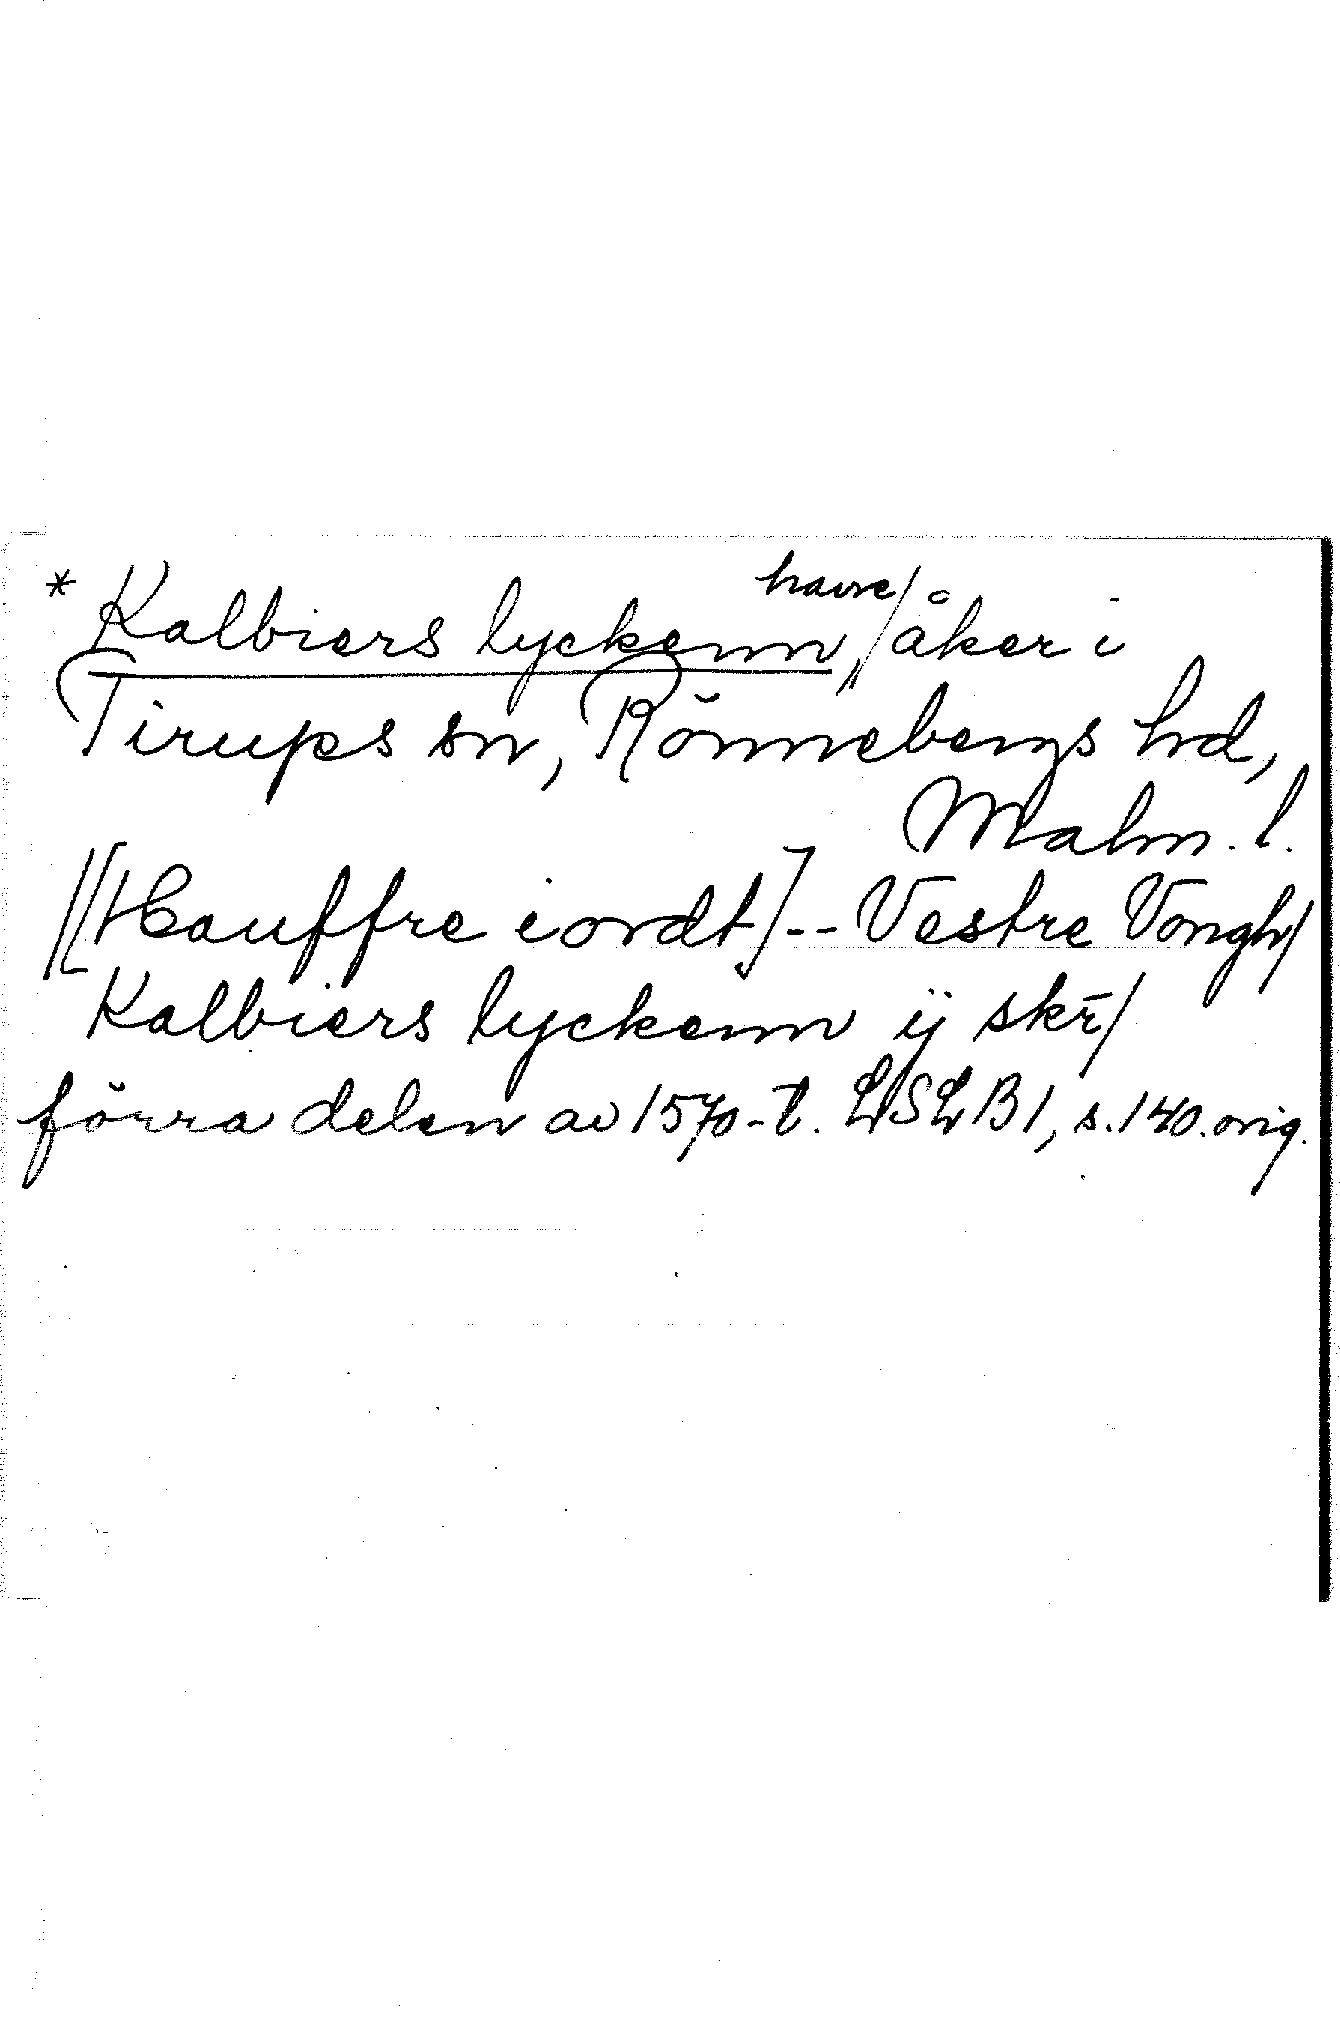 * Kalbiers lyckenn, havre/åker i
Tirups sn, Rönnebergs hd,
Malm. l.
/[Hauffre iordt] -- Vestre Vongh/
Kalbiers lyckenn ij skr̄/
förra delen av 1570-t. LSLB 1, s. 140. orig.